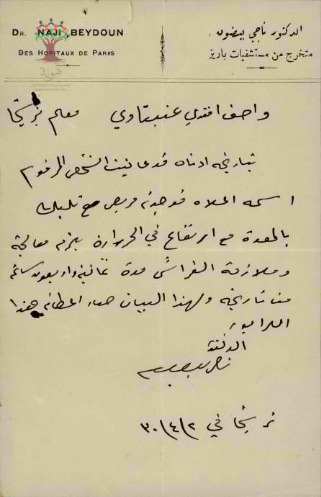 DR. NAJI BEYDOUN
DES HOPITAUX DE PARIS
الدكتور ناجي بيضون
متخرج من مستشفيات باريز
واصف افندي عنبتاوي معلم ترشيحا
بتاريخه ادناه قد عاينت الشخص المرقوم
اسمه اعلاه فوجدته مريض مع تلبك
بالمعدة مع ارتفاع في الحرارة يلزم معالجة
وملازمة الفراش مدة ثمانية واربعون ساعة
من تاريخه ولهذا البيان صار اعطائه هذا
الدكتور
ترشيحا في ٣٠/٤/٢